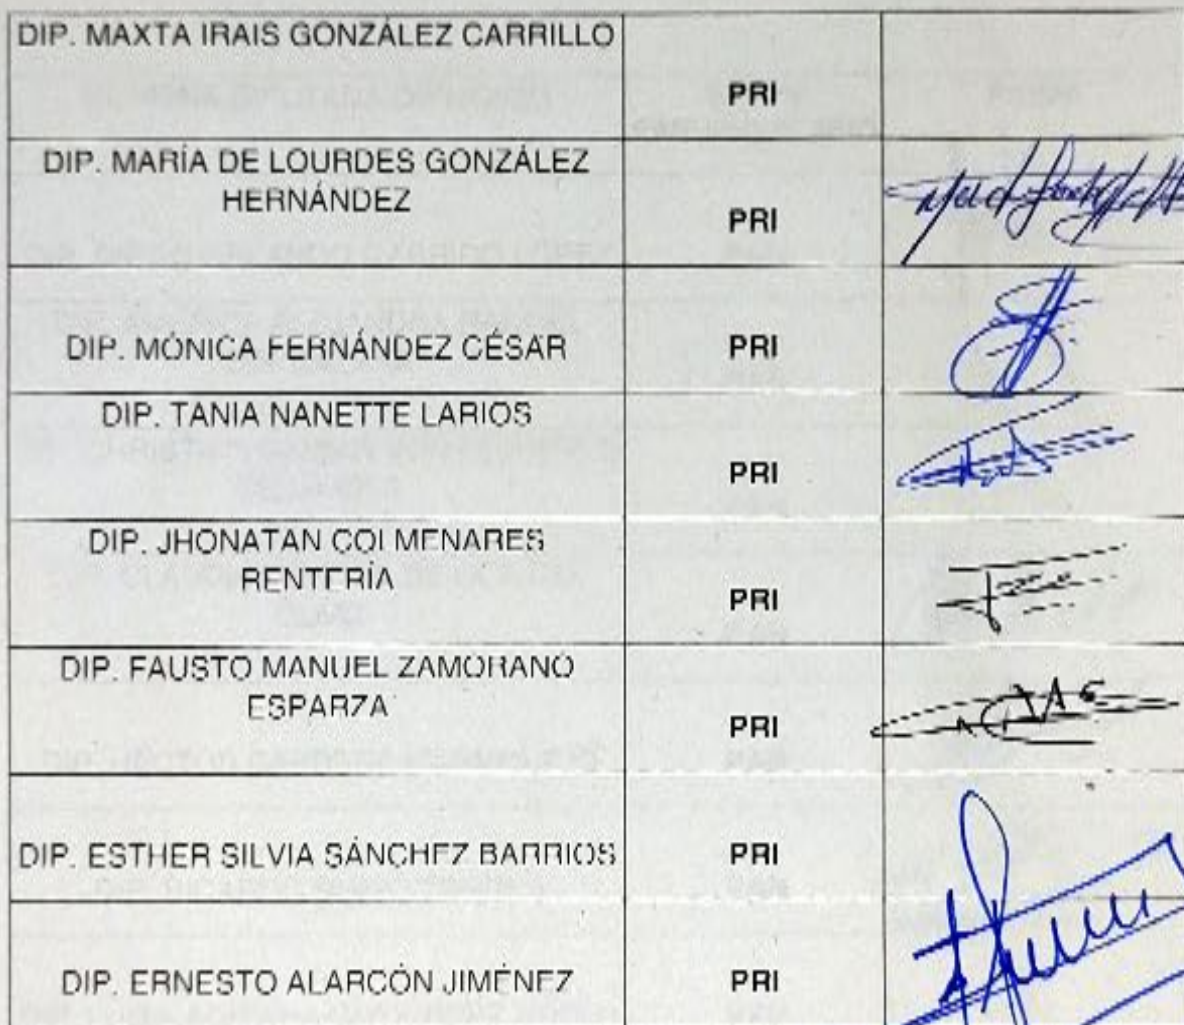 DIP. MAXTA IRAIS GONZÁLEZ CARRILLO
PRI
DIP. MARÍA DE LOURDES GONZÁLEZ
HERNÁNDEZ
PRI
DIP. MÓNICA FERNÁNDEZ CÉSAR
PRI
DIP. TANIA NANETTE LARIOS
PRI
DIP. JHONATAN COLMENARES
RENTERÍA
PRI
DIP. FAUSTO MANUEL ZAMORANO
ESPARZA
PRI
DIP. ESTHER SILVIA SÁNCHEZ BARRIOS
PRI
DIP. ERNESTO ALARCÓN JIMÉNEZ
PRI